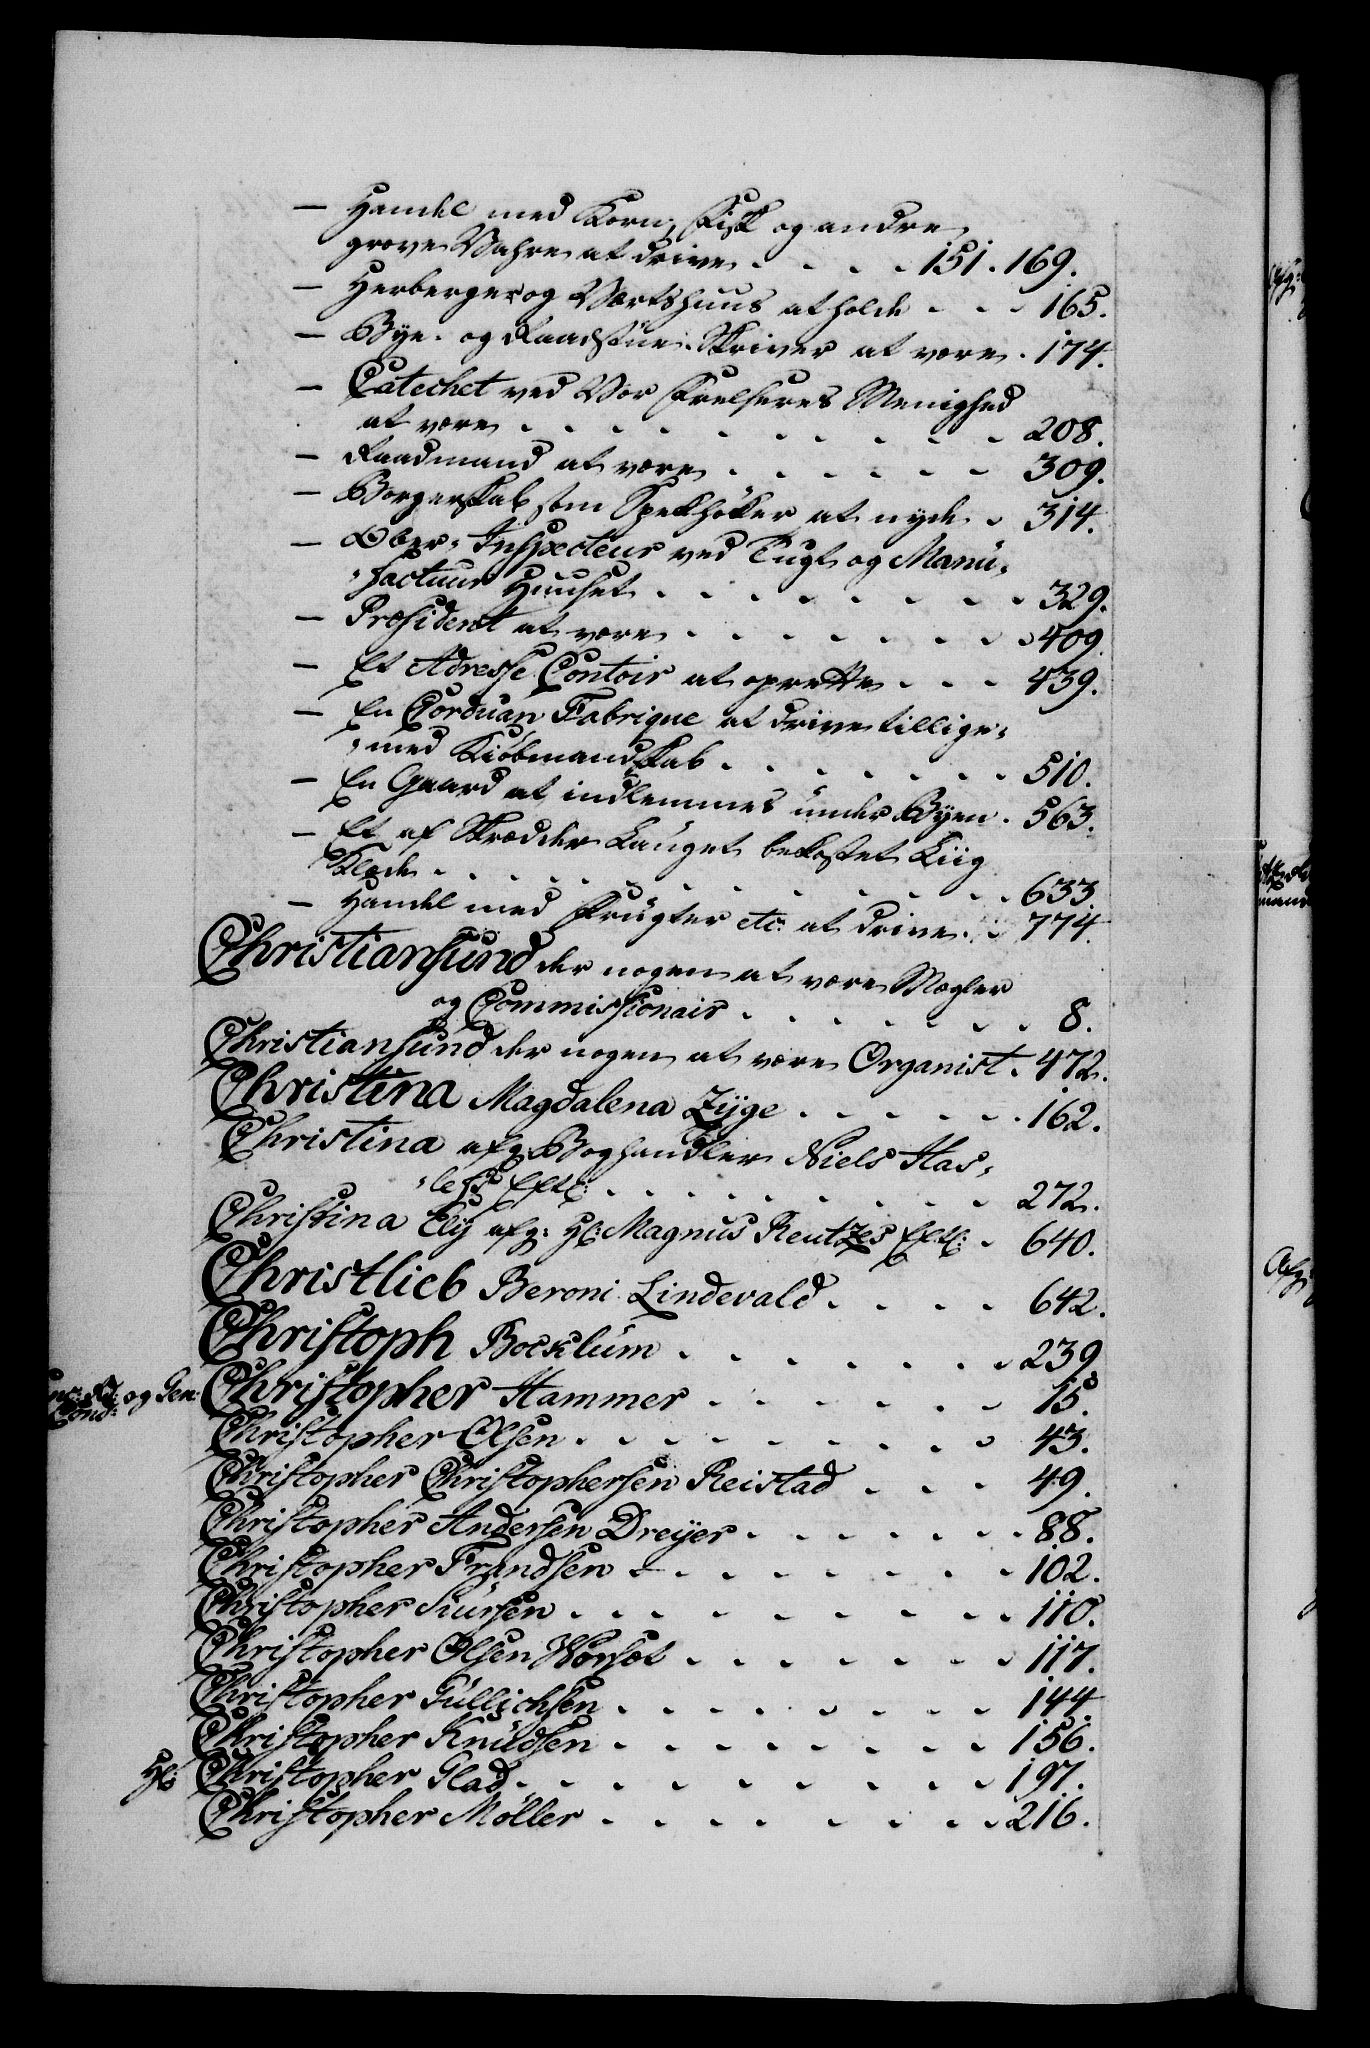 — Handel med Korn, Fisk og andre
grove Vahre at drive . . . . 151. 169.
— Herberge og Vertshuus at holde . . . 165.
— Bye- og Raadstue-Skriver at være . 174.
— Catechet ved Vor Frelseres Menighed
at være . . . . . . . . . . 208.
— Raadmand at være . . . . . . 309.
— Borgerskab som Spekhöker at nyde . 314.
— Ober-Inspecteur ved Tugt og Manu-
-factuur Huuset . . . . . . . . 329.
— Præsident at være . . . . . . . 409.
— Et Adresse Contoir at oprette . . . 439.
— En Corduan Fabrique at drive tillige-
-med Kiöbmandskab . . . . . . . 510.
— En Gaard at indlemmes under Byen . 563.
— Et af Skrædder Lauget bekostet Liig
Klæde . . . . . . . . . . . 633
— Handel med Frugter etc: at drive . . 774.
Christiansund der nogen at være Mægler
og Commissionair . . . . . . . 8.
Christiansund der nogen at være Organist . 472.
Christina Magdalena Zÿge . . . . . . 162.
Christina afg: Boghandler Niels Has-
-les Eftl: . . . . . . . . . 272.
Christina Elÿ afg: Hr: Magnus Reutzes Eftl: . 640.
Christlieb Beroni Lindevald . . . . 642.
Christoph Bocklum . . . . . . . 239
Rd: og Gen: Christopher Hammer . . . . . . 15.
Cond:
Christopher Olsen . . . . . . . . . 43.
Christopher Christophersen Reistad . . . 49.
Christopher Andersen Dreyer . . . . . . . 88.
Christopher Frandsen . . . . . . . . 102.
Christopher Siursen . . . . . . . . . 110.
Christopher Olsen Worsöt . . . . . . . . 117.
Christopher Gullichsen . . . . . . . . 144
Christopher Knudsen . . . . . . . . 156.
Hr: Christopher Glad . . . . . . . . . . 197.
Christopher Möller . . . . . . . . 216.